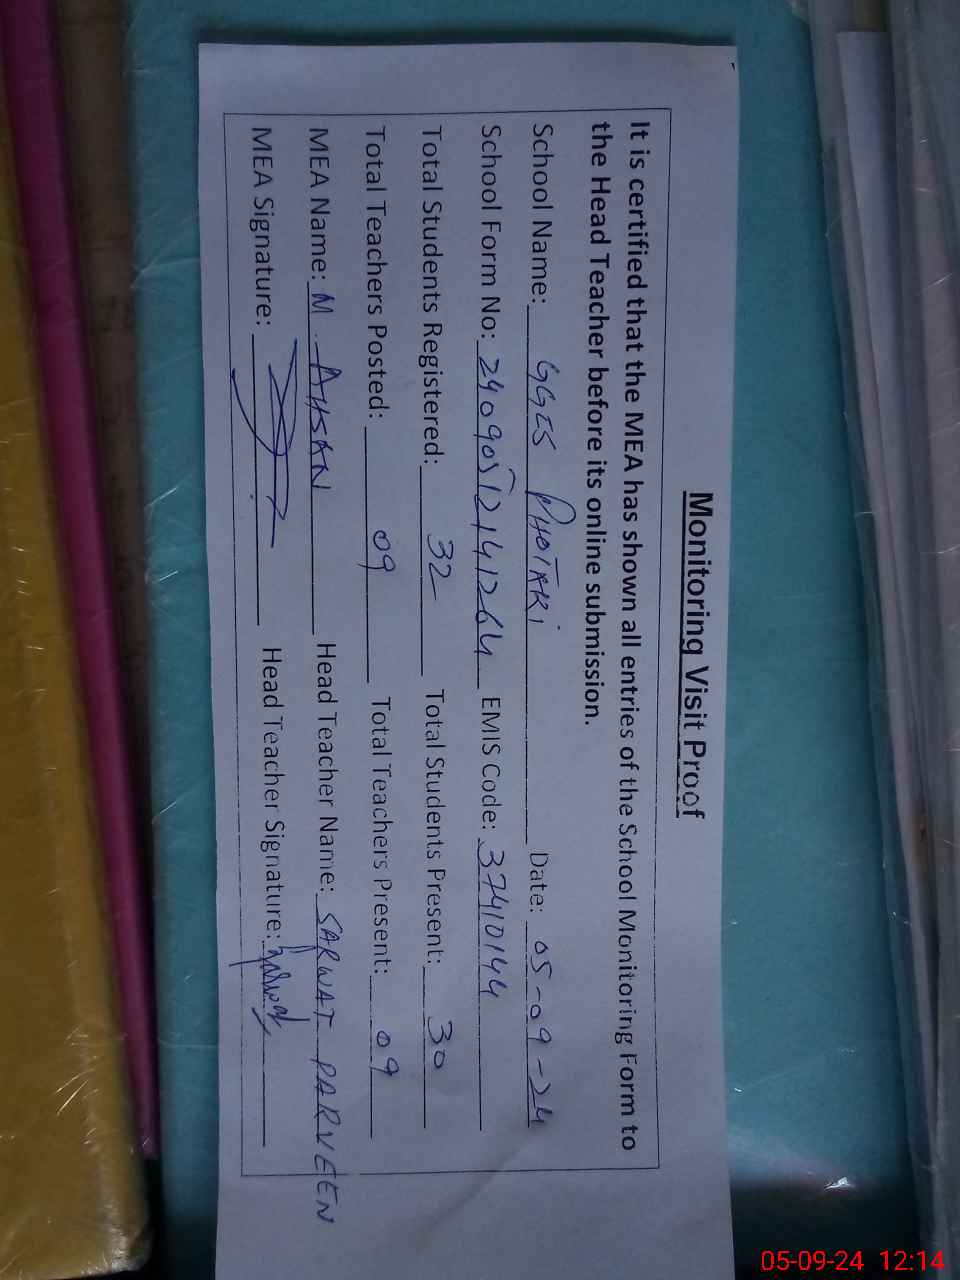 Monitoring Visit Proof
It is certified that the MEA has shown all entries of the School Monitoring Form to
the Head Teacher before its online submission.
School Name: GGES PHOTAKi Date: 05-09-24
School Form No: 24090512141264 EMIS Code: 37410144
Total Students Registered: 32 Total Students Present: 30
Total Teachers Posted: 09 Total Teachers Present: 09
MEA Name: M. AHSAN Head Teacher Name: SARWAT PARVEEN
MEA Signature: Head Teacher Signature:
05-09-24 12:14